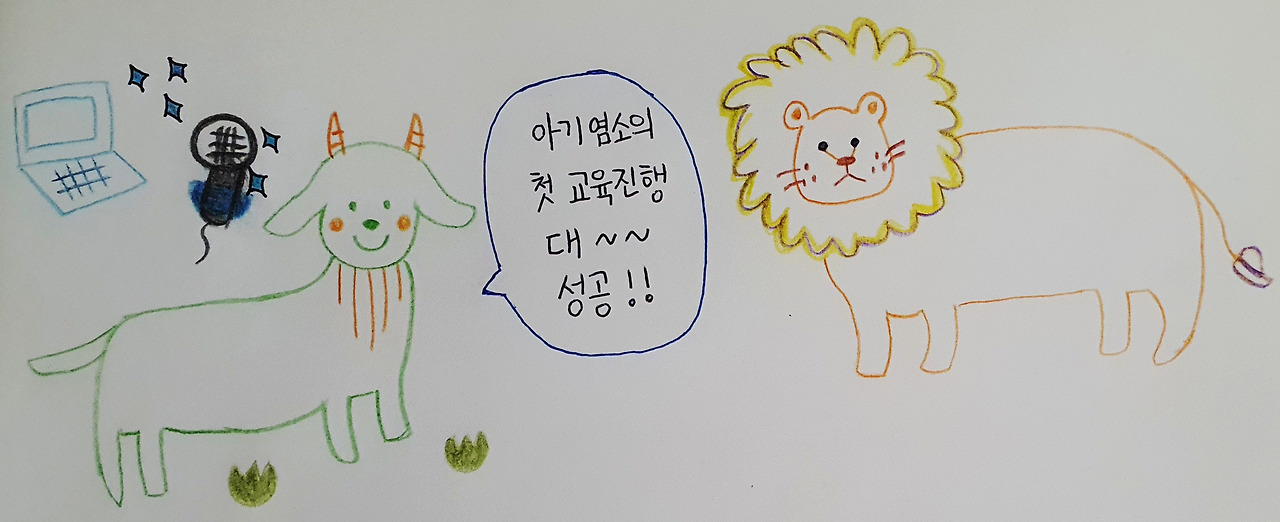 아기염소의
첫 교육진행
대~~
성공!!